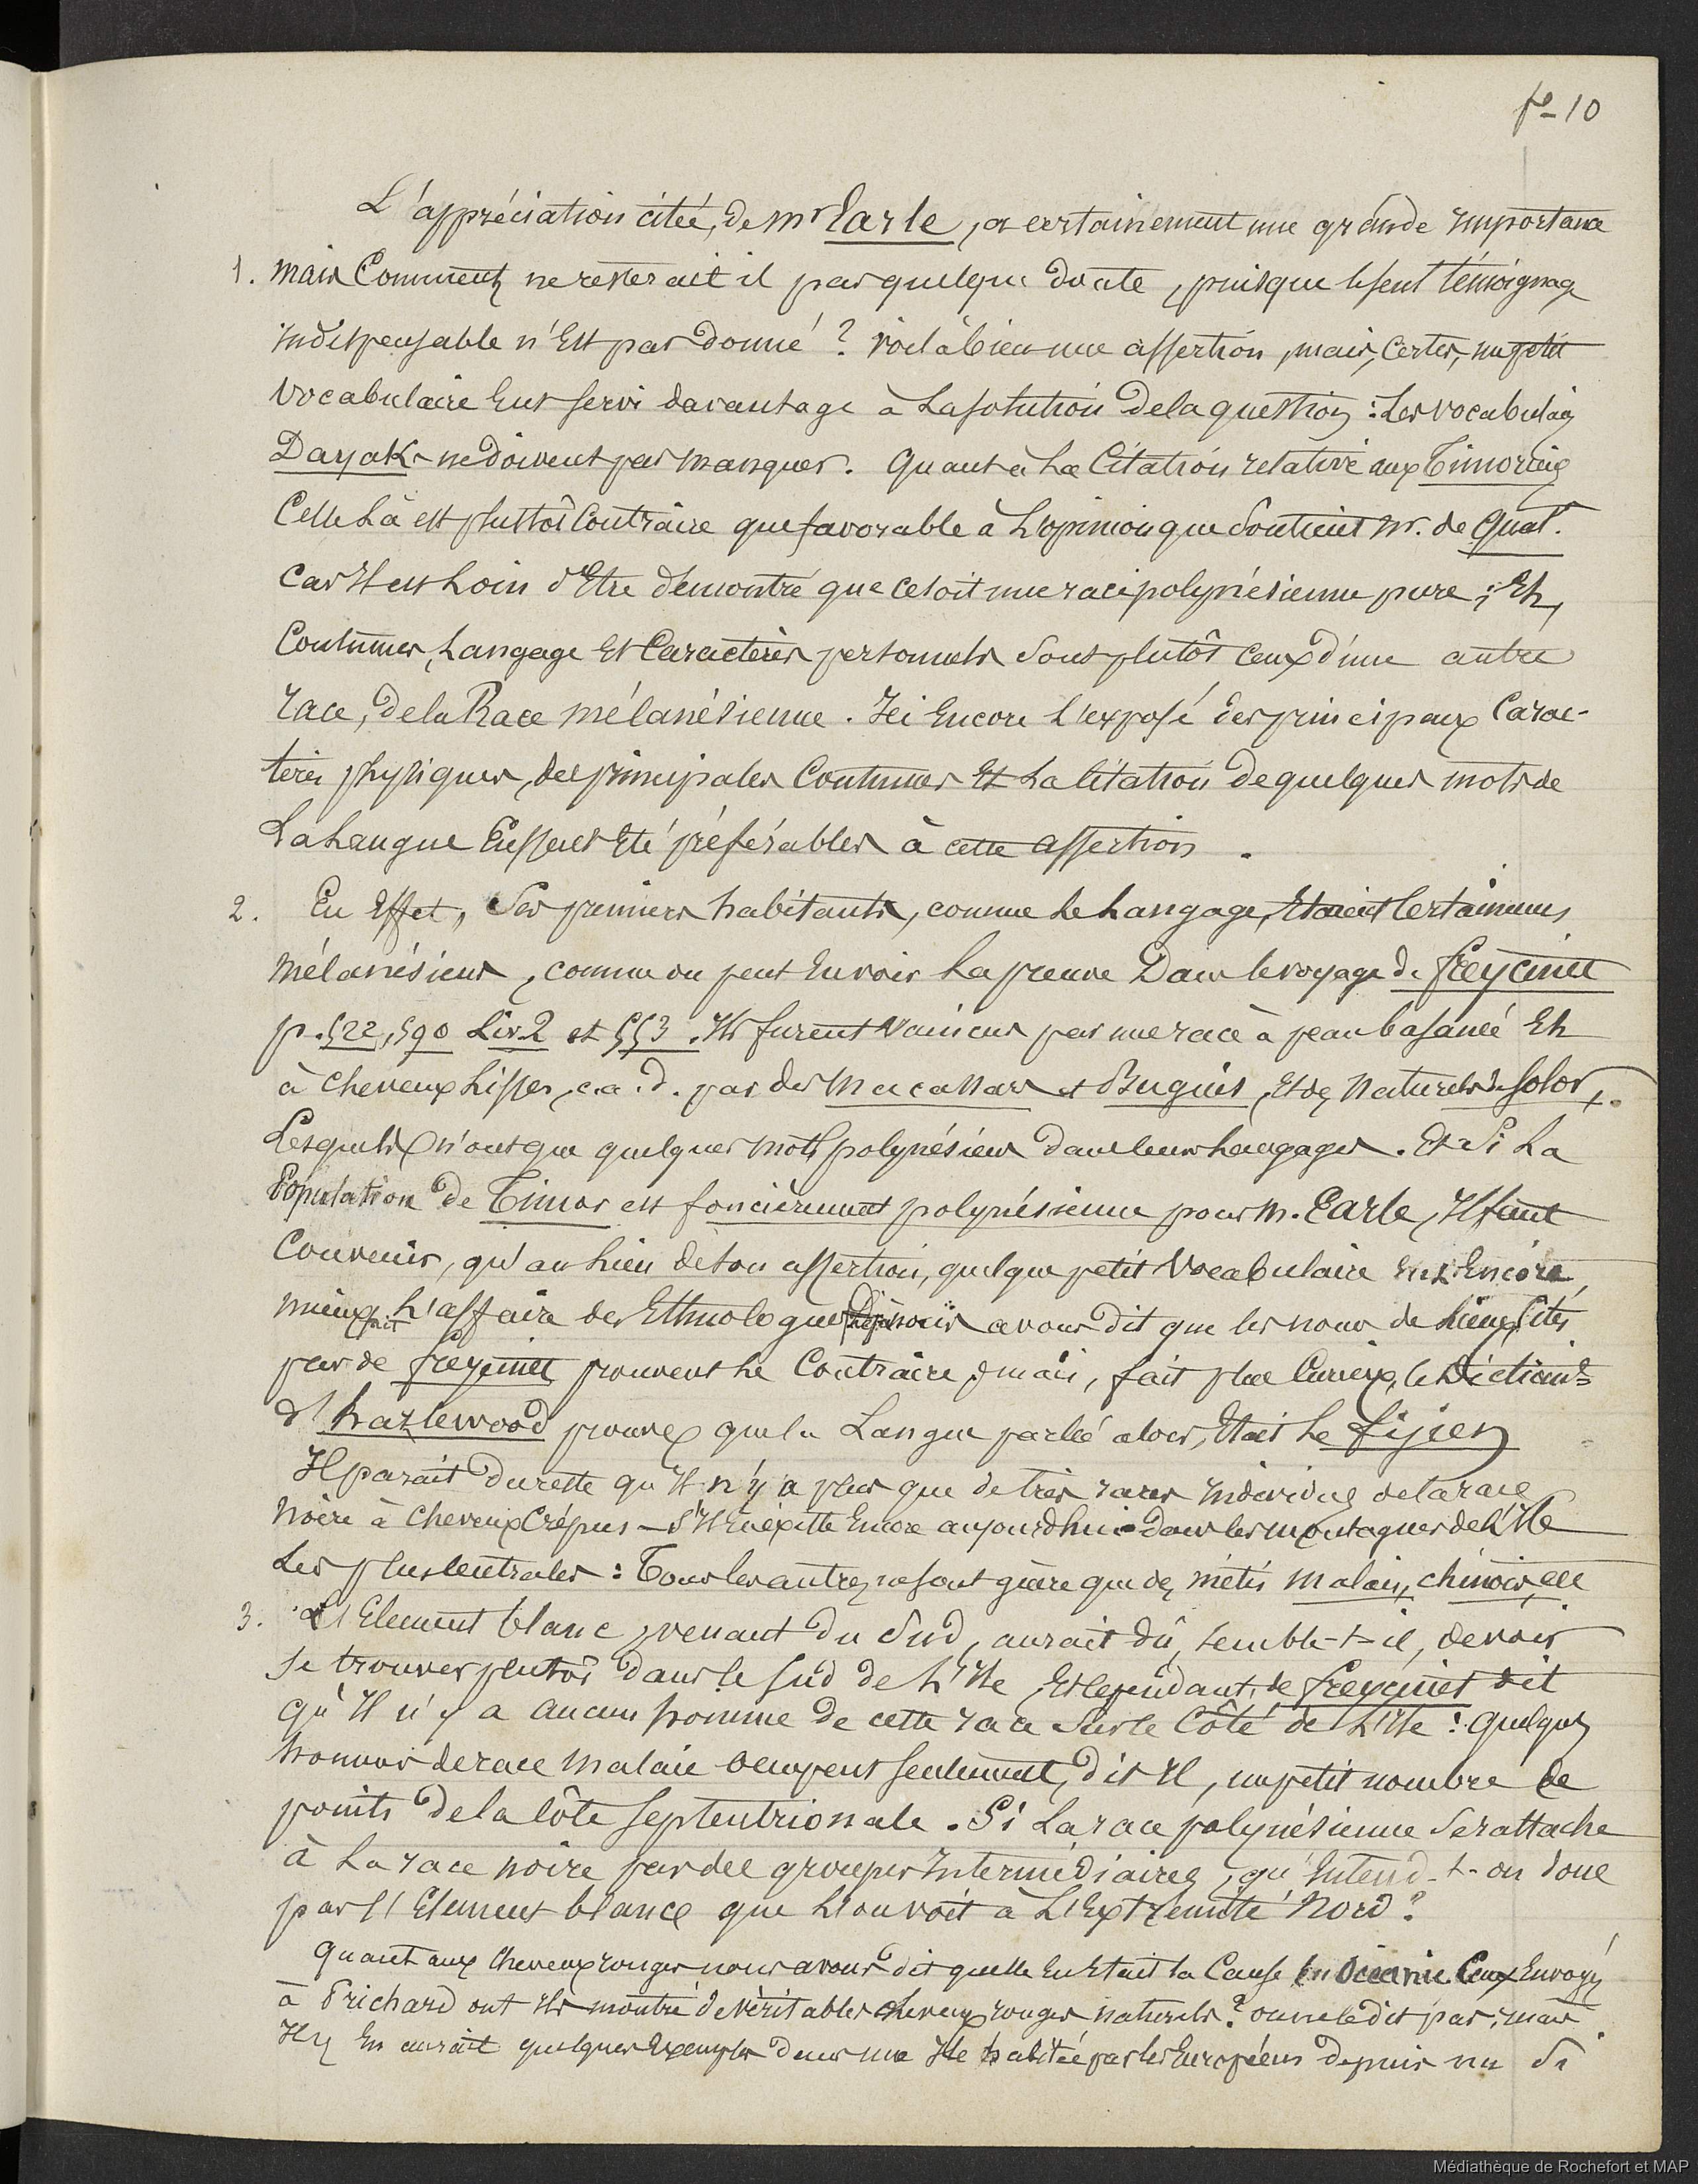 f° 10
L'appréciation citée, de mr Earle, a certainement une grande importance
1. mais Comment ne resterait il pas quelque doute, puisque le seul témoignage
indispensable n'Est pas donné ? voilà bien une assertion, mais, certes, un petit
vocabulaire Eut servi davantage à La solution de la question : Les vocabulaires
Dayak ne doivent pas manquer. Quant à La Citation relative aux Timoriens
Celle Là est plustôt Contraire que favorable à L'opinion que Soutient Mr. de Quat.
Car Il est Loin d'Etre démontré que ce soit une race polynésienne pure ; Et,
Coutumes, Langage Et Caractères personnels Sont plutôt Ceux d'une autre
race, de la Race mélanésienne. Ici Encore L'exposé des principaux Carac-
tères physiques, des principales Coutumes Et La Citation de quelques mots de
La Langue Eussent Eté préférables à cette assertion.
2. En Effet, Ses premiers habitants, comme Le Langage, Etaient Certainement
mélanésiens, comme on peut En voir La preuve Dans le voyage de freycinet
p. 522, 590 Liv. 2 et 553. Ils furent Vaincus par une race à peau basanée Et
à cheveux Lisses, c.a.d. par des Macassars et Buguis, Et des Naturels de Solor,
Lesquels n'ont que quelques mots polynésiens dans leurs Langages. Et Si La
Population de Timor est foncièrement polynésienne pour M. Earle, Il faut
Convenir, qu'au Lieu de son assertion, quelque petit Vocabulaire Eut Encore
mieux fait L'affaire des Ethnologues avons dit que les noms de Lieux Cités
par de freycinet prouvent Le Contraire ; mais, fait plus Curieux, le Dictionre
d'hazlewood prouve que la Langue parlée alors, Etait Le fijien
Il parait du reste qu'Il n'y a plus que de très rares Individus de la race
Noire à Cheveux Crépus – S'Il En éxiste Encore aujourdhui – dans les montagnes de L'Ile
Les plus Centrales : Tous les autres ne sont guère que des métis malais, chinois, etc
3. L'Element blanc, venant du Sud, aurait dû, semble-t-il, devoir
se trouver plutôt dans le Sud de L'Ile, Et Cependant, de freycinet dit
qu'Il n'y a aucun homme de cette race Sur le Côté de L'Ile : quelques
hommes de race malaie occupent seulement, dit Il, un petit nombre de
points de la Côte Septentrionale. Si La race polynésienne Se rattache
à La race noire par des groupes Intermédiaires, qu'Entend-t-on donc
par l'Element blanc que L'on voit à L'Extremité Nord ?
Quant aux Cheveux rouges nous avons dit quelle En Etait la Cause En Océanie. Ceux Envoyés
à Prichard ont Ils montré de véritables cheveux rouges naturels ? on ne le dit pas ; mais
Il y En aurait quelques Exemples dans une Ile habitée par les Européens depuis un Si
Médiathèque de Rochefort et MAP